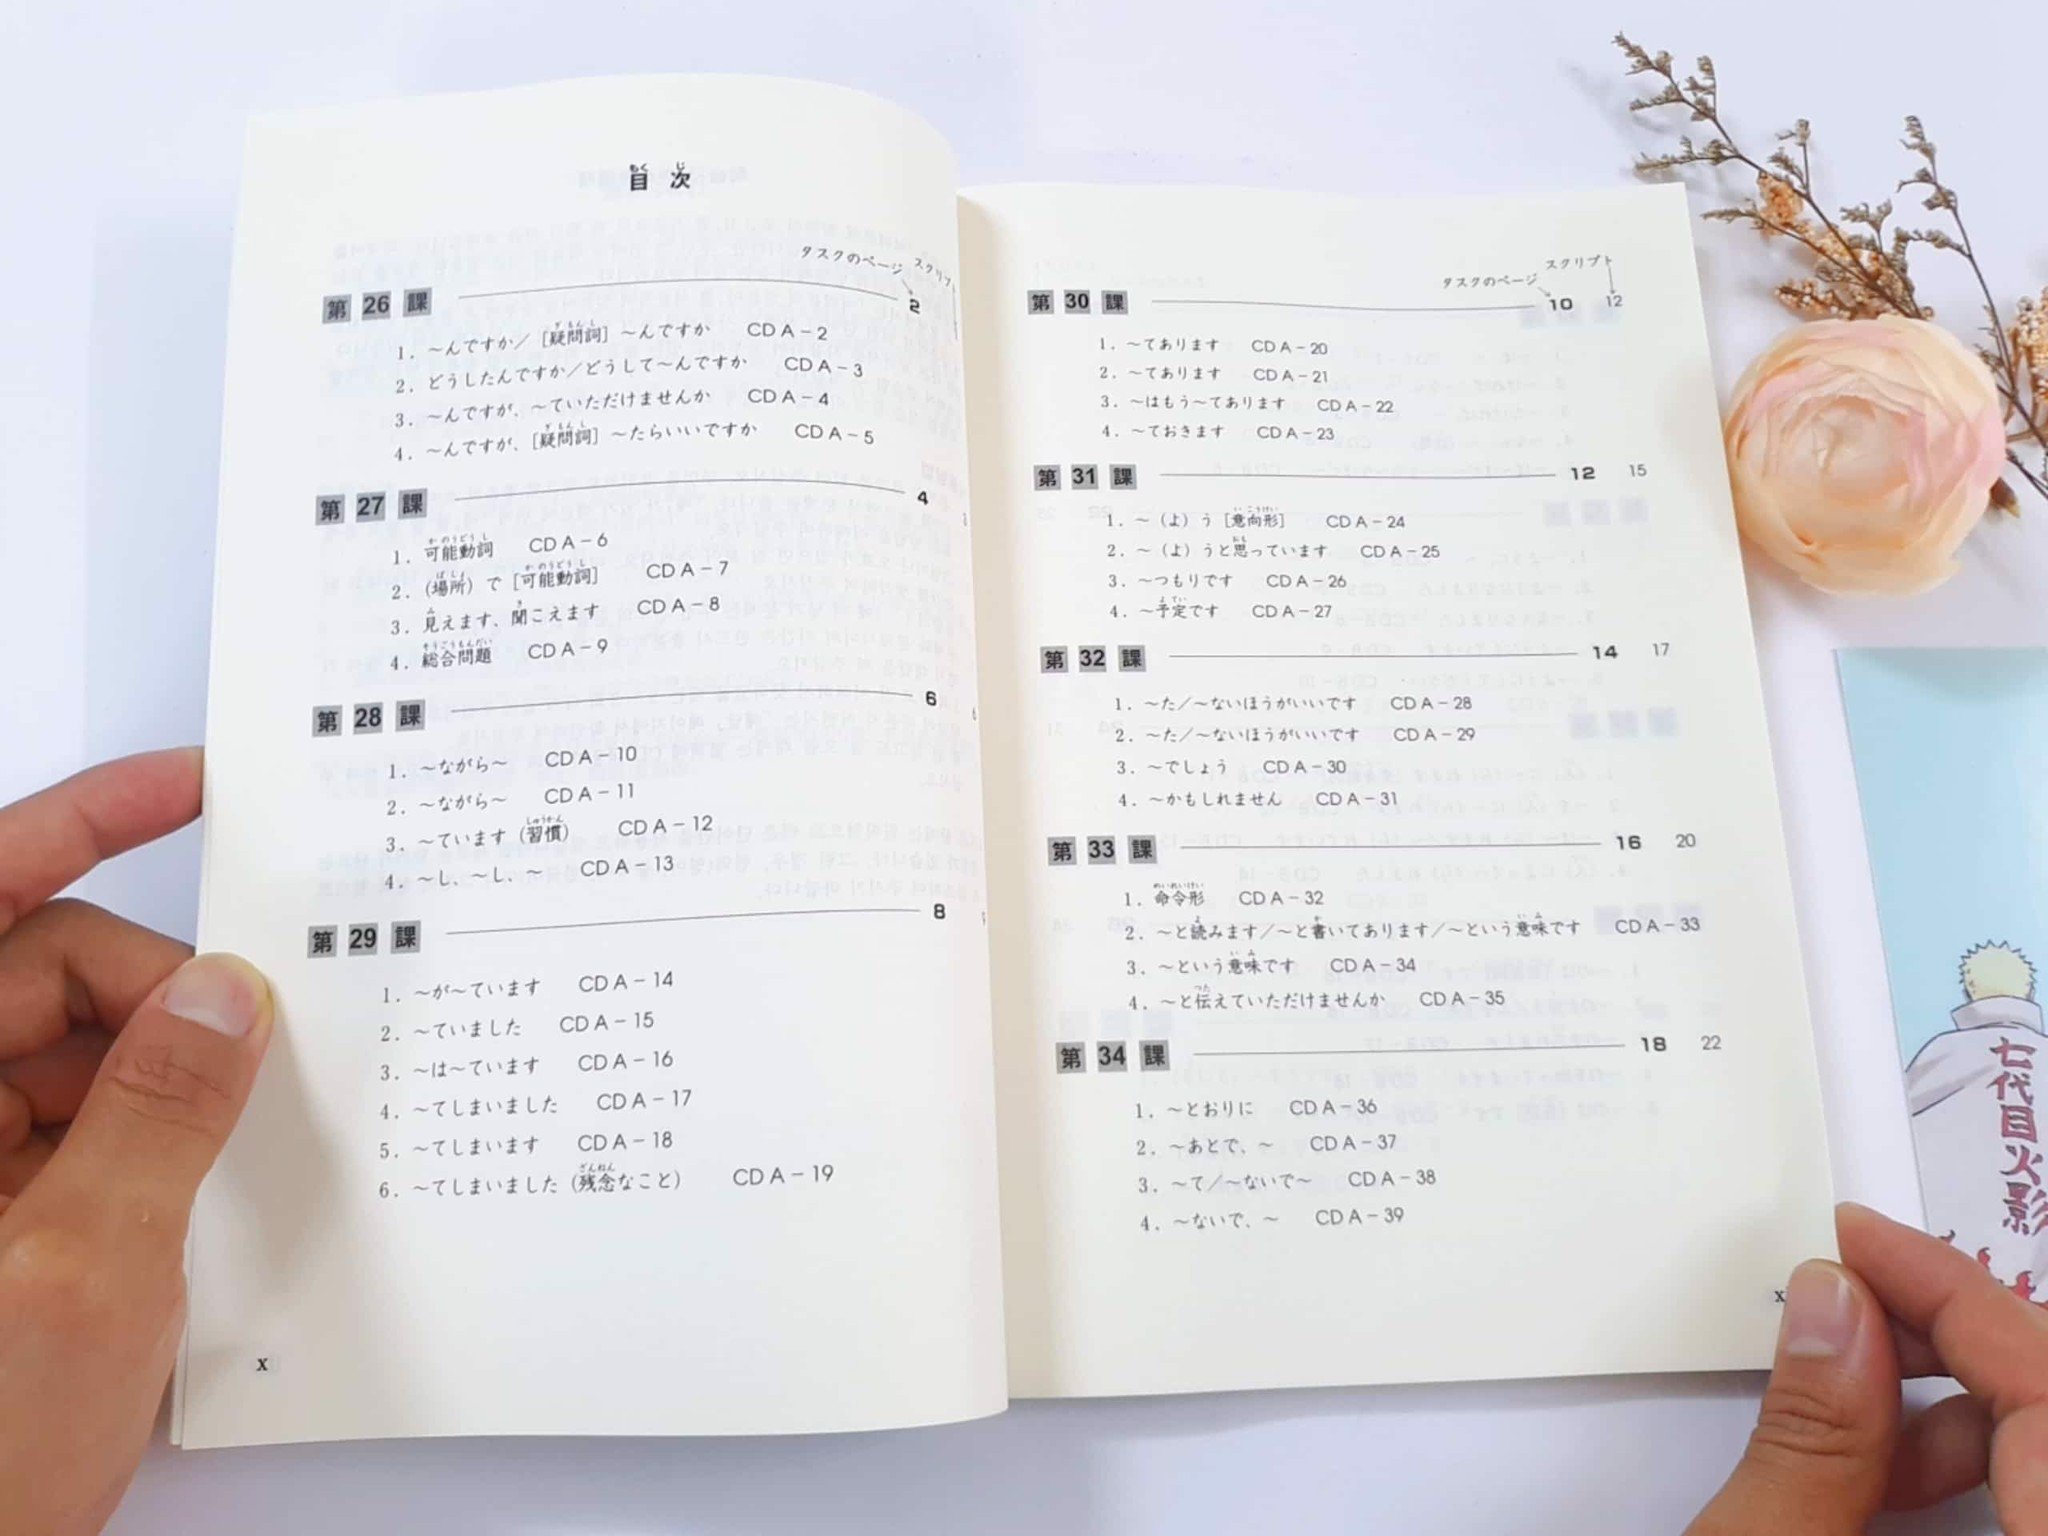 目次
タスクのページ
第26課 2
1. ～んですか／［疑問詞］～んですか CD A－2
2. どうしたんですか／どうして～んですか CD A－3
3. ～んですが、～ていただけませんか CD A－4
4. ～んですが、［疑問詞］～たらいいですか CD A－5
第27課 4
1. 可能動詞 CD A－6
2. （場所）で［可能動詞］ CD A－7
3. 見えます、聞こえます CD A－8
4. 総合問題 CD A－9
第28課 6
1. ～ながら～ CD A－10
2. ～ながら～ CD A－11
3. ～ています（習慣） CD A－12
4. ～し、～し、～ CD A－13
第29課 8
1. ～が～ています CD A－14
2. ～ていました CD A－15
3. ～は～ています CD A－16
4. ～てしまいました CD A－17
5. ～てしまいます CD A－18
6. ～てしまいました（残念なこと） CD A－19
x
スクリプト
タスクのページ
第30課 10 12
1. ～てあります CD A－20
2. ～てあります CD A－21
3. ～はもう～てあります CD A－22
4. ～ておきます CD A－23
第31課 12 15
1. ～（よ）う［意向形］ CD A－24
2. ～（よ）うと思っています CD A－25
3. ～つもりです CD A－26
4. ～予定です CD A－27
第32課 14 17
1. ～た／～ないほうがいいです CD A－28
2. ～た／～ないほうがいいです CD A－29
3. ～でしょう CD A－30
4. ～かもしれません CD A－31
第33課 16 20
1. 命令形 CD A－32
2. ～と読みます／～と書いてあります／～という意味です CD A－33
3. ～という意味です CD A－34
4. ～と伝えていただけませんか CD A－35
第34課 18 22
1. ～とおりに CD A－36
2. ～あとで、～ CD A－37
3. ～て／～ないで～ CD A－38
4. ～ないで、～ CD A－39
七代目火影